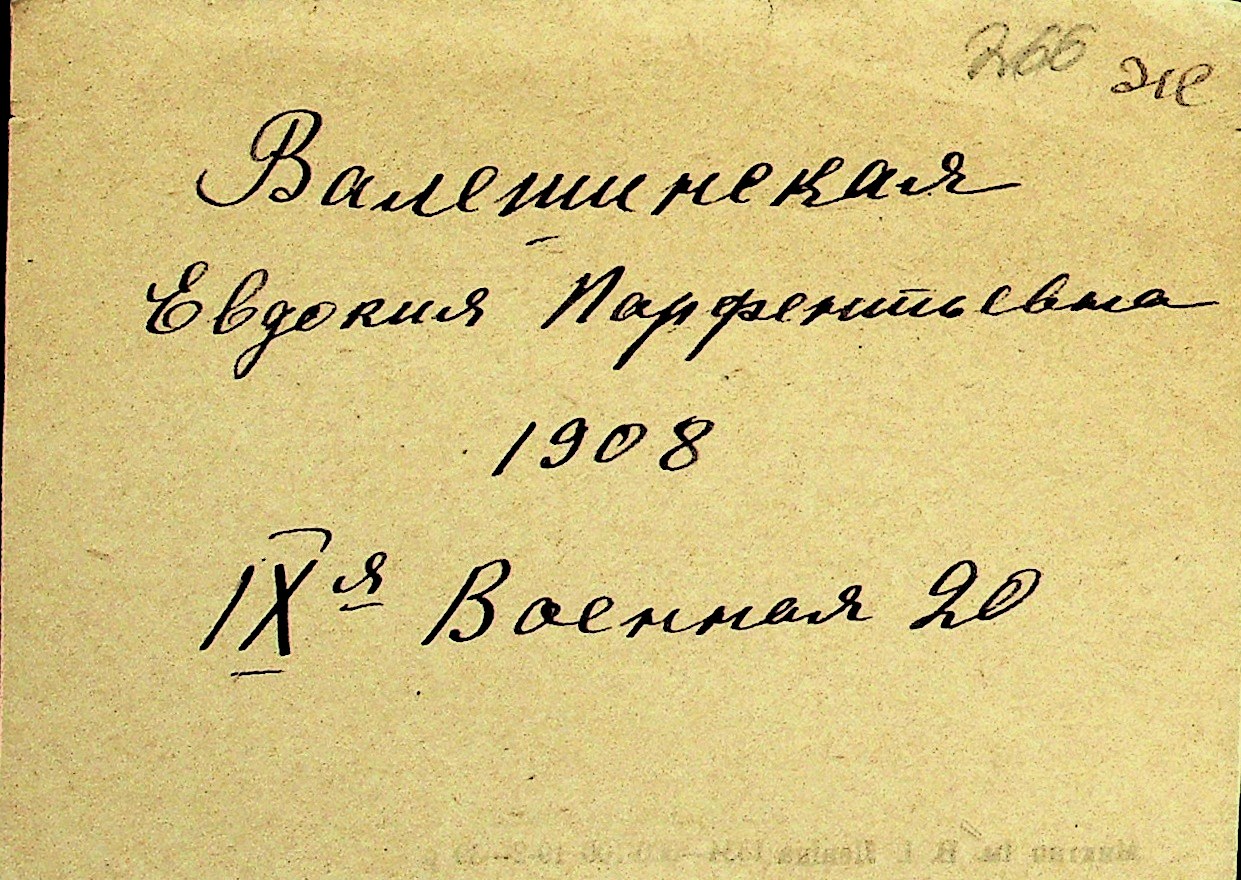 266 же
Валешинская
Евдокия Парфентьевна
1908
IХя Военная 20